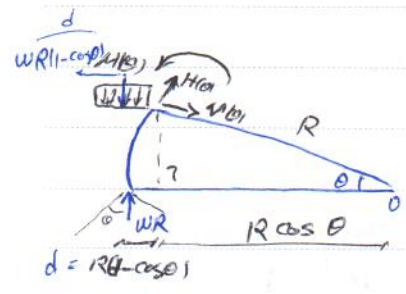 d
WR(1-cosθ) M(θ)
H(θ)
V(θ)
R
θ
O
θ
WR
R cos θ
d = R(1-cosθ)